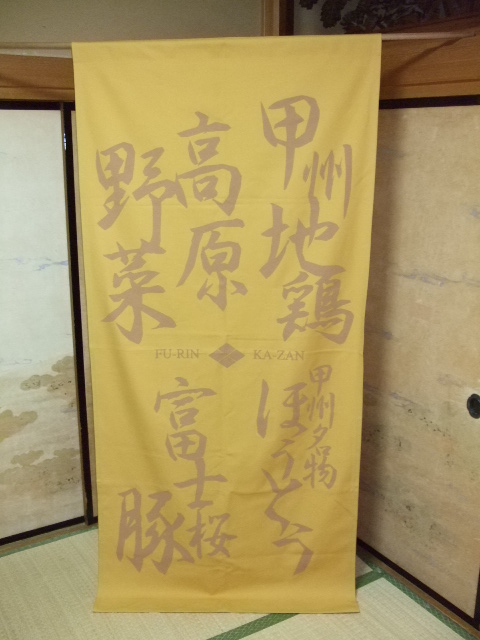 甲州地鶏
高原
野菜
FU-RIN KA-ZAN
甲州名物
ほうとう
富士桜
豚